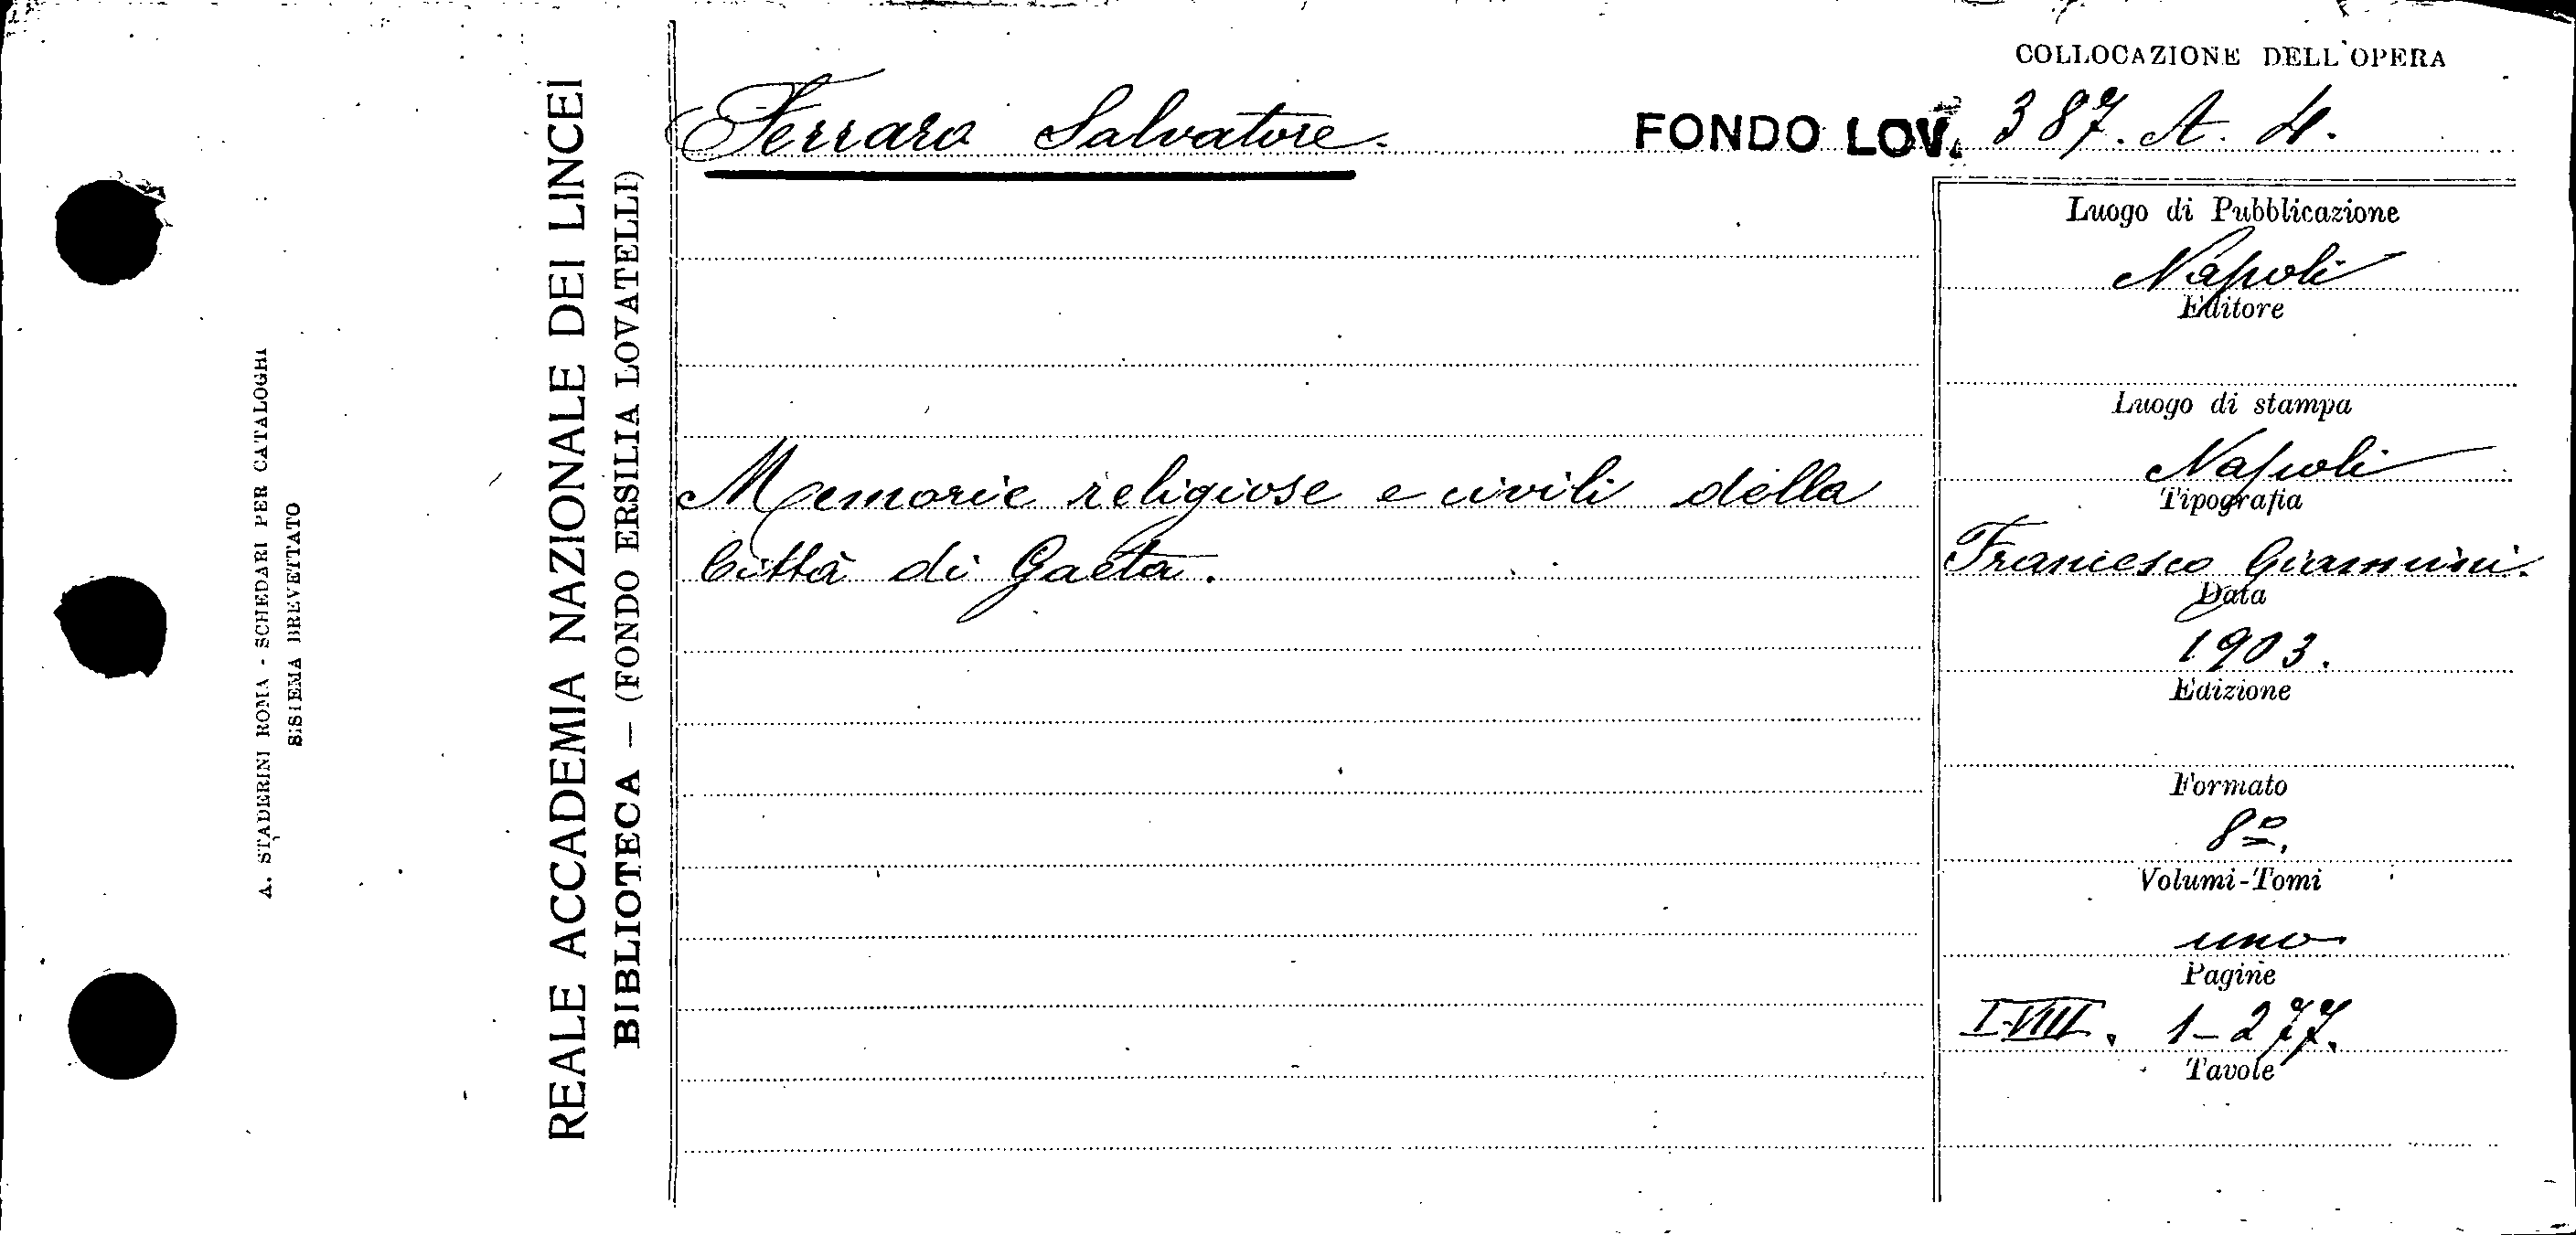 A. STADERINI ROMA - SCHEDARI PER CATALOGHI
SISTEMA BREVETTATO
REALE ACCADEMIA NAZIONALE DEI LINCEI
BIBLIOTECA — (FONDO ERSILIA LOVATELLI)
COLLOCAZIONE DELL'OPERA
Ferraro Salvatore.
FONDO LOV. 387. A. 4.
Memorie religiose e civili della
Città di Gaeta.
Luogo di Pubblicazione
Napoli
Editore
Luogo di stampa
Napoli
Tipografia
Francesco Giannini.
Data
1903.
Edizione
Formato
8º.
Volumi-Tomi
uno
Pagine
I-VIII. 1-277.
Tavole